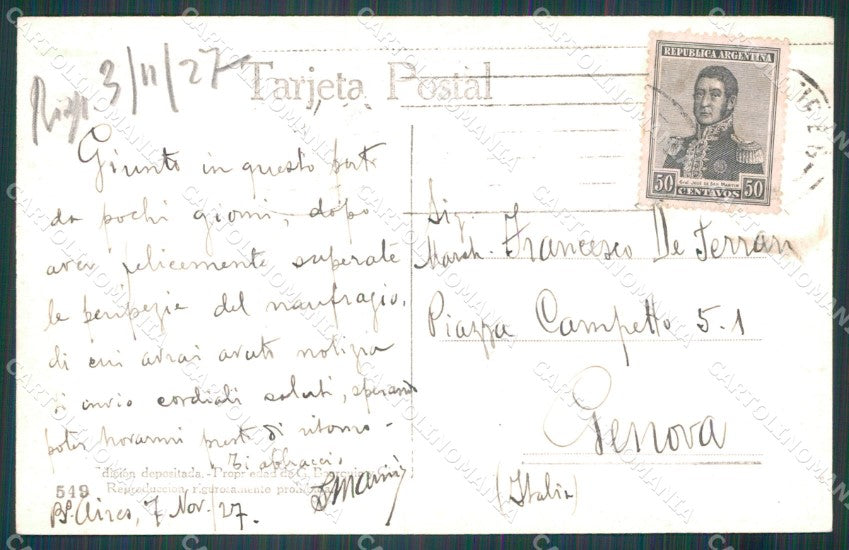 3/11/27
Tarjeta Postal
REPUBLICA ARGENTINA
50 CENTAVOS 50
Giunto in questo porto
da pochi giorni, dopo
aver felicemente superate
le peripezie del naufragio,
di cui avrai avuto notizia
ti invio cordiali saluti, sperando
poter trovarmi presto di ritorno -
Ti abbraccio
Sig.
March. Francesco De Ferrari
Piazza Campetto 5.1
Genova
(Italia)
dición depositada.-Propiedad de G.
549 Reproducción rigurosamente prohibida
Bs. Aires, 7 Nov./27.
CARTOLINOMANIA